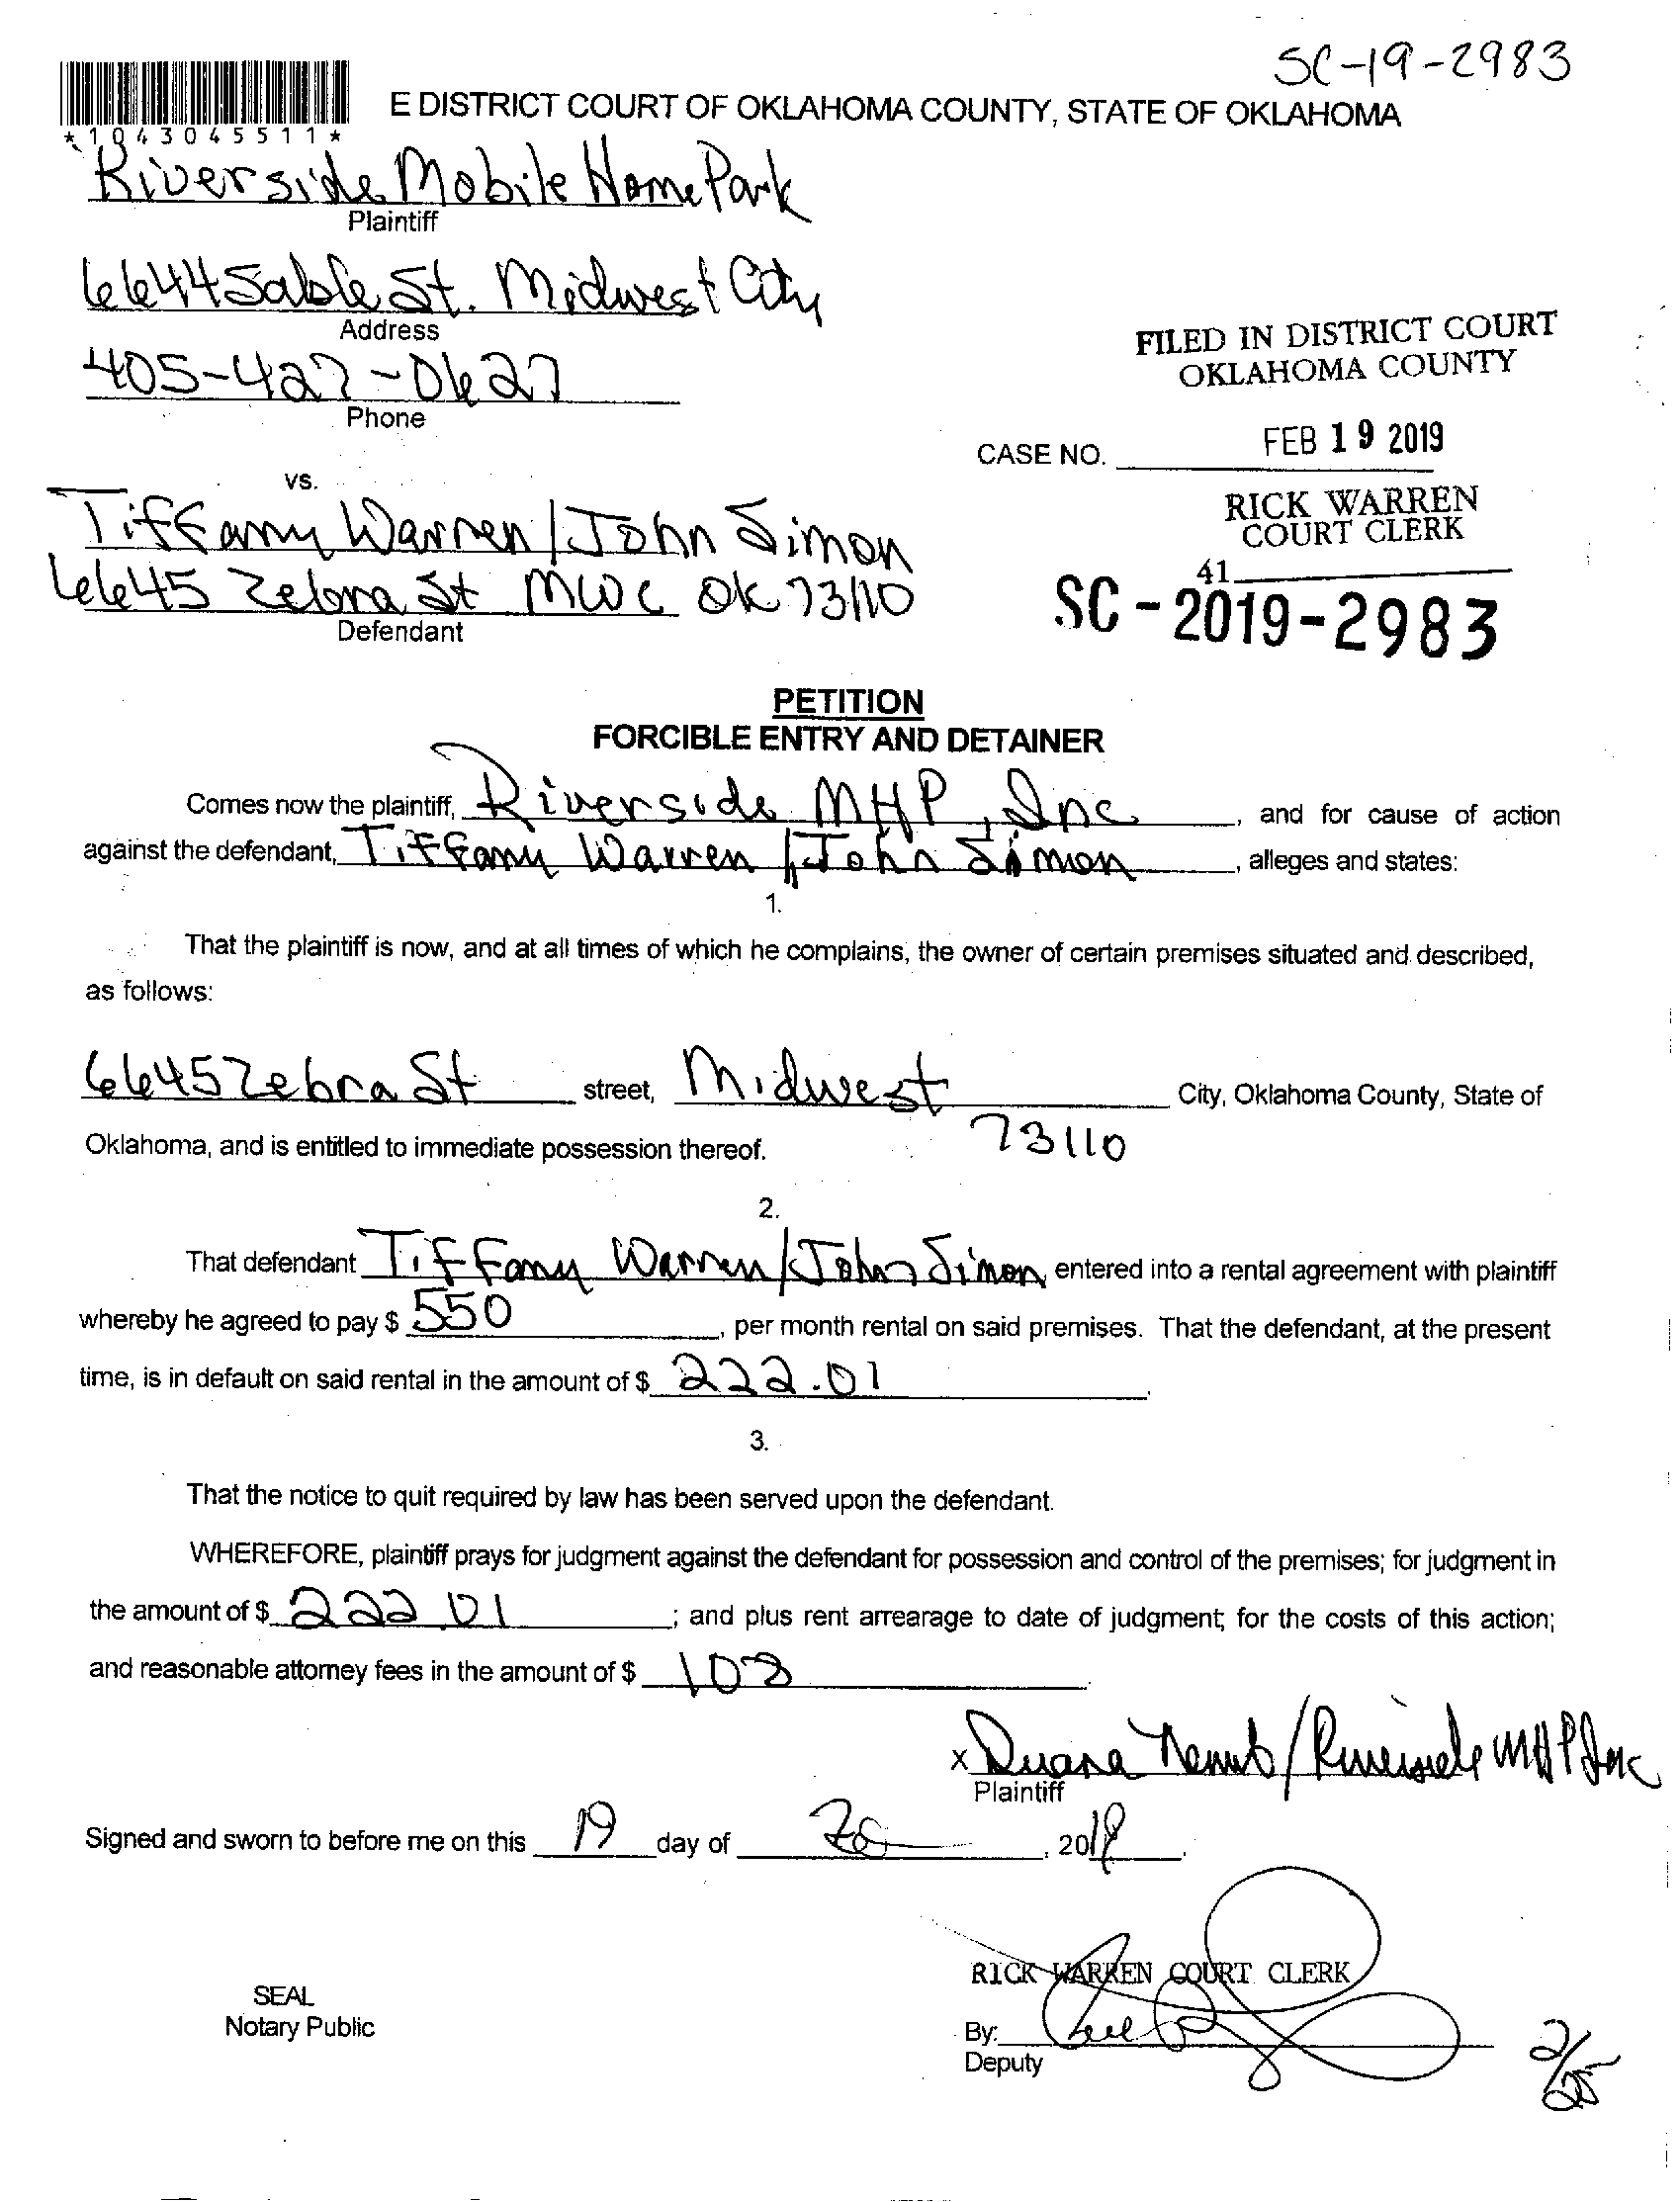 SC-19-2983
E DISTRICT COURT OF OKLAHOMA COUNTY, STATE OF OKLAHOMA
*1043045511*
Riverside Mobile Home Park
Plaintiff
6644 Sable St. Midwest City
Address
405-427-0627
Phone
FILED IN DISTRICT COURT
OKLAHOMA COUNTY
FEB 19 2019
CASE NO.
RICK WARREN
COURT CLERK
41
SC-2019-2983
vs.
Tiffany Warren / John Simon
6645 Zebra St MWC OK 73110
Defendant
PETITION
FORCIBLE ENTRY AND DETAINER
Comes now the plaintiff, Riverside MHP, Inc, and for cause of action
against the defendant, Tiffany Warren / John Simon, alleges and states:
1.
That the plaintiff is now, and at all times of which he complains, the owner of certain premises situated and described,
as follows:
6645 Zebra St street, Midwest City, Oklahoma County, State of
73110
Oklahoma, and is entitled to immediate possession thereof.
2.
That defendant Tiffany Warren / John Simon entered into a rental agreement with plaintiff
whereby he agreed to pay $ 550, per month rental on said premises. That the defendant, at the present
time, is in default on said rental in the amount of $ 222.01.
3.
That the notice to quit required by law has been served upon the defendant.
WHEREFORE, plaintiff prays for judgment against the defendant for possession and control of the premises; for judgment in
the amount of $ 222.01; and plus rent arrearage to date of judgment; for the costs of this action;
and reasonable attorney fees in the amount of $ 103.
x Duana / Riverside MHP Inc
Plaintiff
Signed and sworn to before me on this 19 day of , 2019.
RICK WARREN COURT CLERK
SEAL
Notary Public
By:
Deputy
2/25